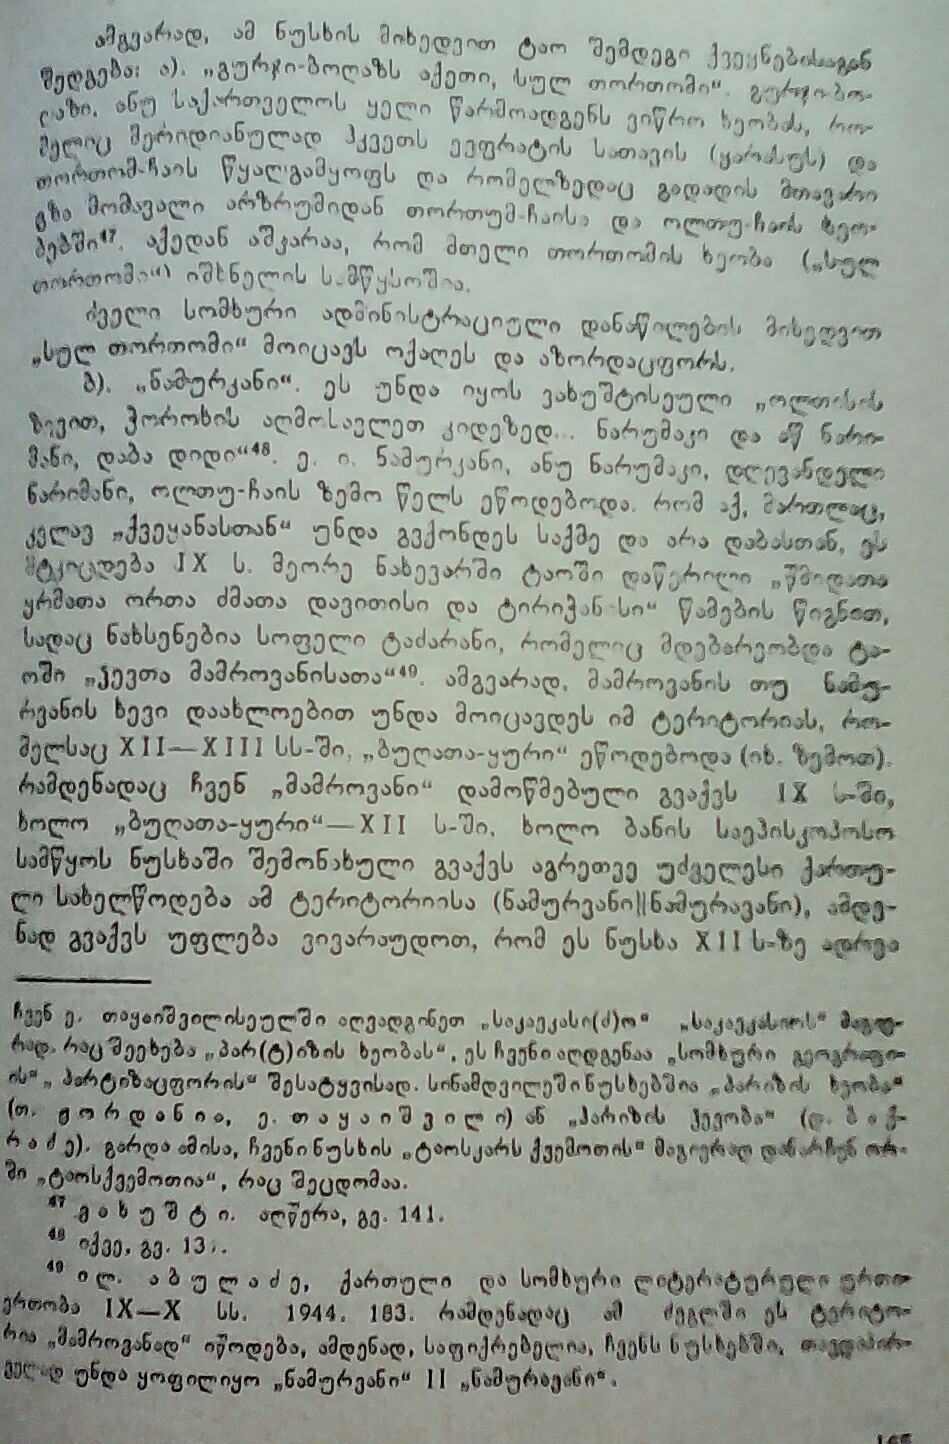 ამგვარად, ამ ნუსხის მიხედვით ტაო შემდეგი ქვეყნებისაგან
შედგება: ა). „გურჯი-ბოღაზს აქეთი, სულ თორთომი“. გურჯი-ბო-
ღაზი, ანუ საქართველოს ყელი წარმოადგენს ვიწრო ხეობას, რო-
მელიც მერიდიანულად ჰკვეთს ევფრატის სათავის (ყარასუს) და
თორთომ-ჩაის წყალგამყოფს და რომელზედაც გადადის მთავარი
გზა მომავალი არზრუმიდან თორთუმ-ჩაისა და ოლთუ-ჩაის ხეო-
ბებში⁴⁷. აქედან აშკარაა, რომ მთელი თორთომის ხეობა („სულ
თორთომი“) იშხნელის სამწყსოშია.
ძველი სომხური ადმინისტრაციული დანაწილების მიხედვით
„სულ თორთომი“ მოიცავს ოქაღეს და აზორდაცფორს.
ბ). „ნამურკანი“. ეს უნდა იყოს ვახუშტისეული „ოლთისის
ზევით, ჭოროხის აღმოსავლეთ კიდეზედ... ნარუმაკი და აწ ნარი-
მანი, დაბა დიდი“⁴⁸. ე. ი. ნამურკანი, ანუ ნარუმაკი, დღევანდელი
ნარიმანი, ოლთუ-ჩაის ზემო წელს ეწოდებოდა. რომ აქ, მართლაც,
კვლავ „ქვეყანასთან“ უნდა გვქონდეს საქმე და არა დაბასთან, ეს
მტკიცდება IX ს. მეორე ნახევარში ტაოში დაწერილი „წმიდათა
ყრმათა ორთა ძმათა დავითისი და ტირიჭანისი“ წამების წიგნით,
სადაც ნახსენებია სოფელი ტაძარანი, რომელიც მდებარეობდა ტა-
ოში „ჴევთა მამროვანისათა“⁴⁹. ამგვარად, მამროვანის თუ ნამუ-
რვანის ხევი დაახლოებით უნდა მოიცავდეს იმ ტერიტორიას, რო-
მელსაც XII—XIII სს-ში, „ბუღათა-ყური“ ეწოდებოდა (იხ. ზემოთ).
რამდენადაც ჩვენ „მამროვანი“ დამოწმებული გვაქვს IX ს-ში,
ხოლო „ბუღათა-ყური“—XII ს-ში, ხოლო ბანის საეპისკოპოსო
სამწყოს ნუსხაში შემონახული გვაქვს აგრეთვე უძველესი ქართუ-
ლი სახელწოდება ამ ტერიტორიისა (ნამურვანი||ნამურავანი), ამდე-
ნად გვაქვს უფლება ვივარაუდოთ, რომ ეს ნუსხა XII ს-ზე ადრეა
ჩვენ ე. თაყაიშვილისეულში აღვადგინეთ „საკავკასი(ძ)ო“ „საკავკასიოს“ მაგივ-
რად. რაც შეეხება „პარ(ტ)იზის ხეობას“, ეს ჩვენი აღდგენაა „სომხური გეოგრაფი-
ის“ „პარტიზაცფორის“ შესატყვისად. სინამდვილეში ნუსხებშია „პარიზის ხეობა“
(თ. ჟორდანია, ე. თაყაიშვილი) ან „პარიზის ჴევობა“ (დ. ბაქ-
რაძე). გარდა ამისა, ჩვენი ნუსხის „ტაოსკარს ქვემოთის“ მაგიერად დანარჩენ ორ-
ში „ტაოსქვემოთია“, რაც შეცდომაა.
⁴⁷ ვახუშტი. აღწერა, გვ. 141.
⁴⁸ იქვე, გვ.
⁴⁹ ილ. აბულაძე, ქართული და სომხური ლიტერატურული ურთი-
ერთობა IX—X სს. 1944. 183. რამდენადაც ამ ძეგლში ეს ტერიტო-
რია „მამროვანად“ იწოდება, ამდენად, საფიქრებელია, ჩვენს ნუსხებში, თავდაპირ-
ველად უნდა ყოფილიყო „ნამურვანი“ II „ნამურავანი“.